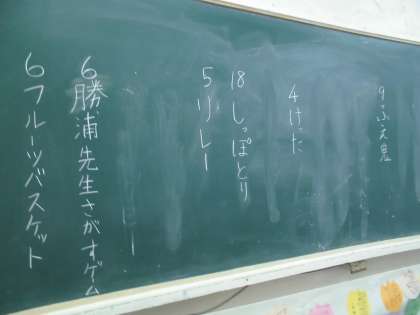 9 ふえ鬼
4 けった
18 しっぽとり
5 リレー
6 勝浦先生さがすゲーム
6 フルーツバスケット